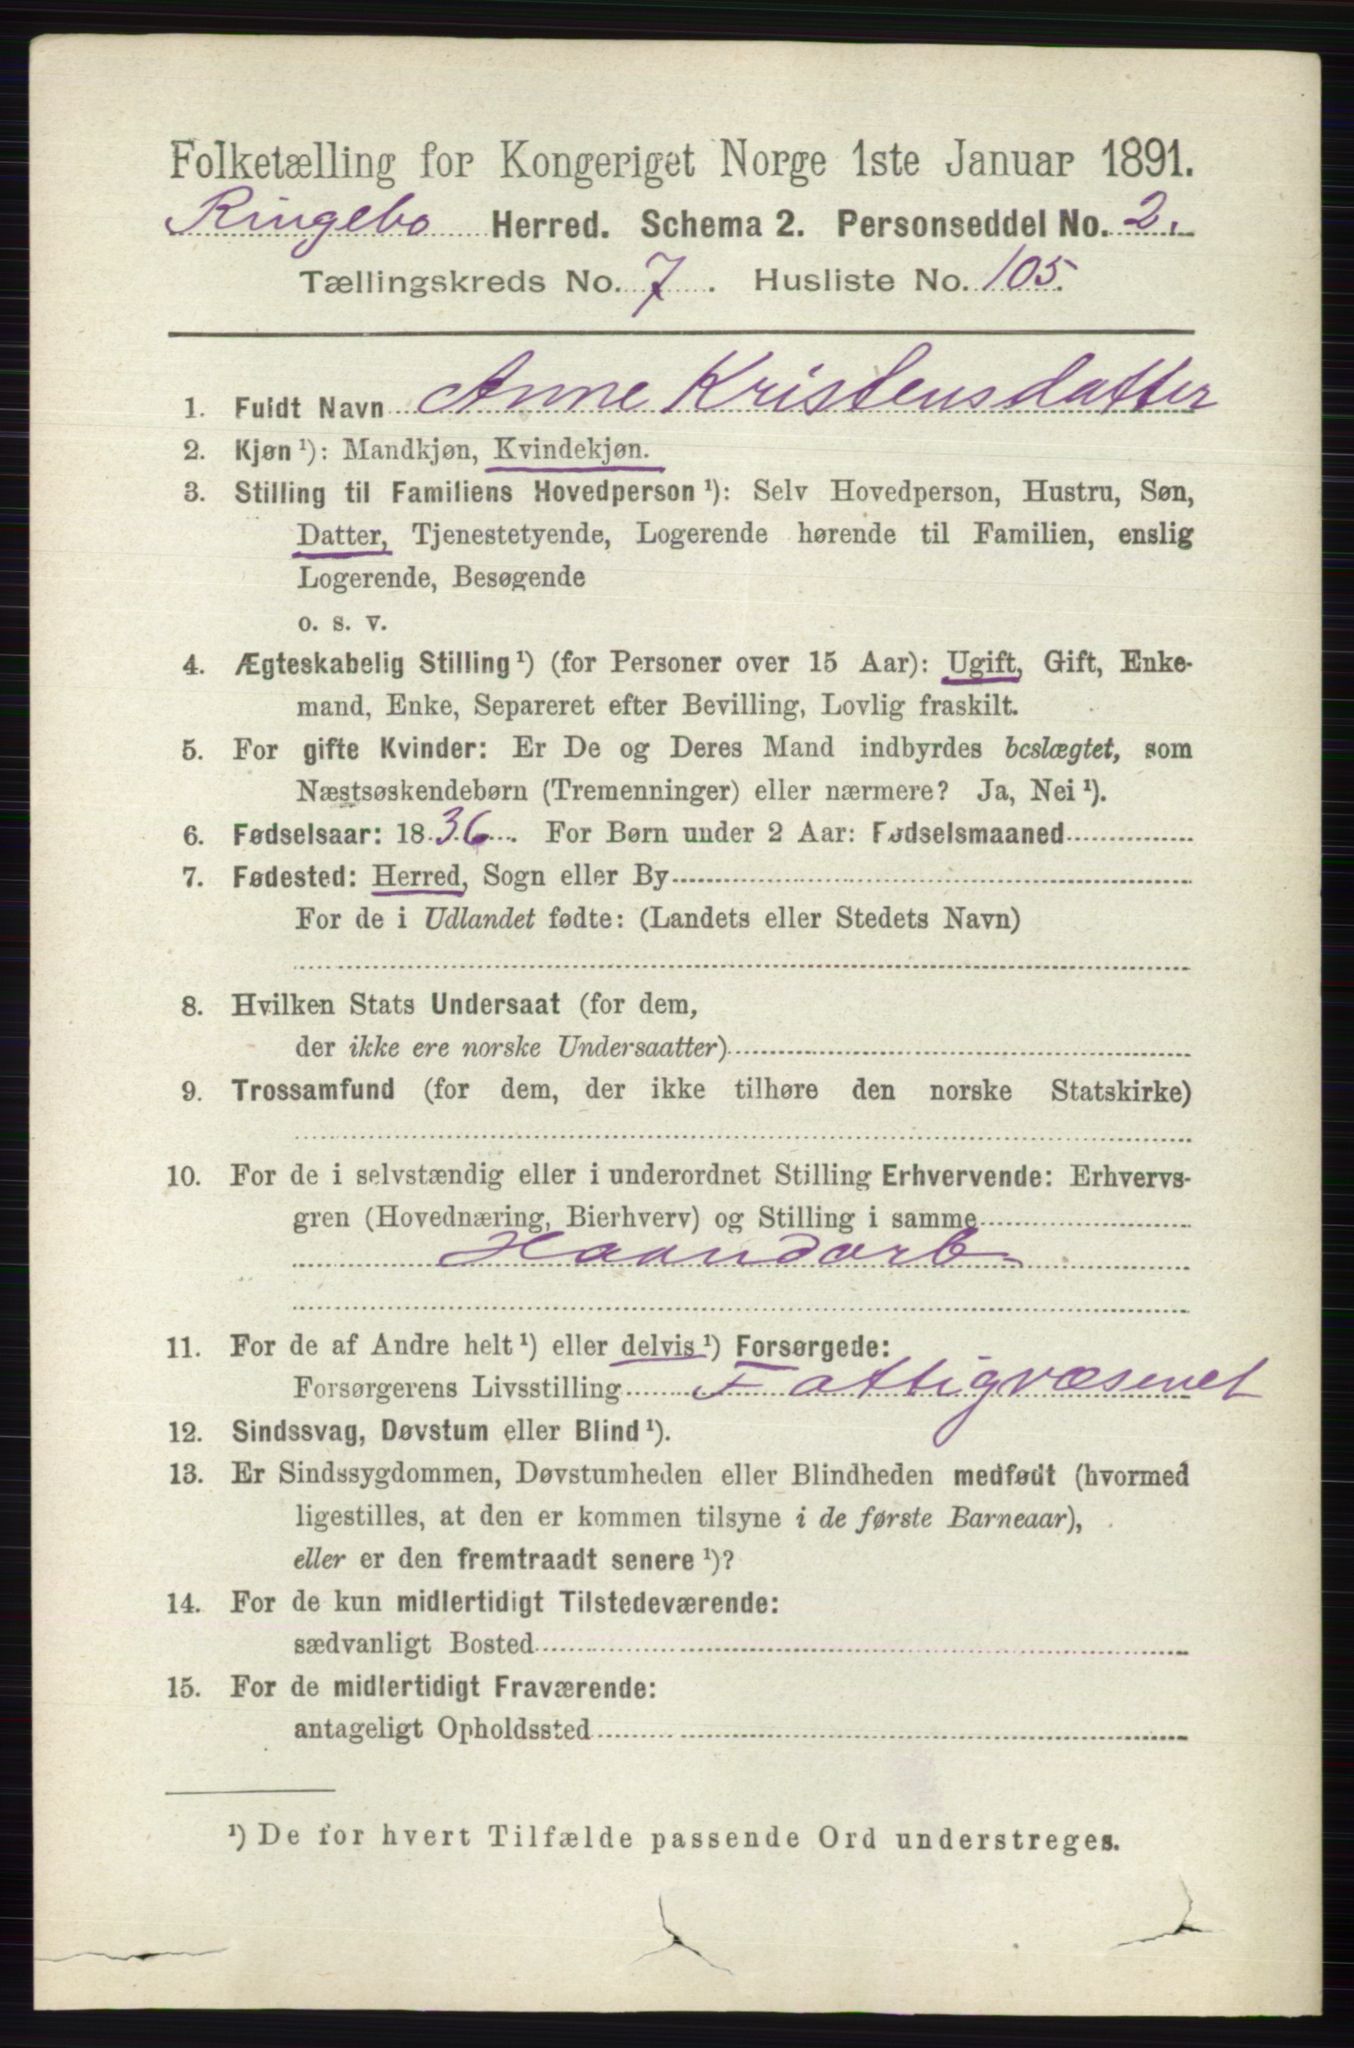 Folketælling for Kongeriget Norge 1ste Januar 1891.
Ringebo Herred. Schema 2. Personseddel No. 2.
Tællingskreds No. 7. Husliste No. 105.
1. Fuldt Navn Anne Kristensdatter
2. Kjøn ¹): Mandkjøn, Kvindekjøn.
3. Stilling til Familiens Hovedperson ¹): Selv Hovedperson, Hustru, Søn,
Datter, Tjenestetyende, Logerende hørende til Familien, enslig
Logerende, Besøgende
o. s. v.
4. Ægteskabelig Stilling ¹) (for Personer over 15 Aar): Ugift, Gift, Enke-
mand, Enke, Separeret efter Bevilling, Lovlig fraskilt.
5. For gifte Kvinder: Er De og Deres Mand indbyrdes beslægtet, som
Næstsøskendebørn (Tremenninger) eller nærmere? Ja, Nei ¹).
6. Fødselsaar: 1836. For Børn under 2 Aar: Fødselsmaaned
7. Fødested: Herred, Sogn eller By
For de i Udlandet fødte: (Landets eller Stedets Navn)
8. Hvilken Stats Undersaat (for dem,
der ikke ere norske Undersaatter)
9. Trossamfund (for dem, der ikke tilhøre den norske Statskirke)
10. For de i selvstændig eller i underordnet Stilling Erhvervende: Erhvervs-
gren (Hovednæring, Bierhverv) og Stilling i samme
Haandarb
11. For de af Andre helt ¹) eller delvis ¹) Forsørgede:
Forsørgerens Livsstilling Fattigvæsenet
12. Sindssvag, Døvstum eller Blind ¹).
13. Er Sindssygdommen, Døvstumheden eller Blindheden medfødt (hvormed
ligestilles, at den er kommen tilsyne i de første Barneaar),
eller er den fremtraadt senere ¹)?
14. For de kun midlertidigt Tilstedeværende:
sædvanligt Bosted
15. For de midlertidigt Fraværende:
antageligt Opholdssted
¹) De for hvert Tilfælde passende Ord understreges.